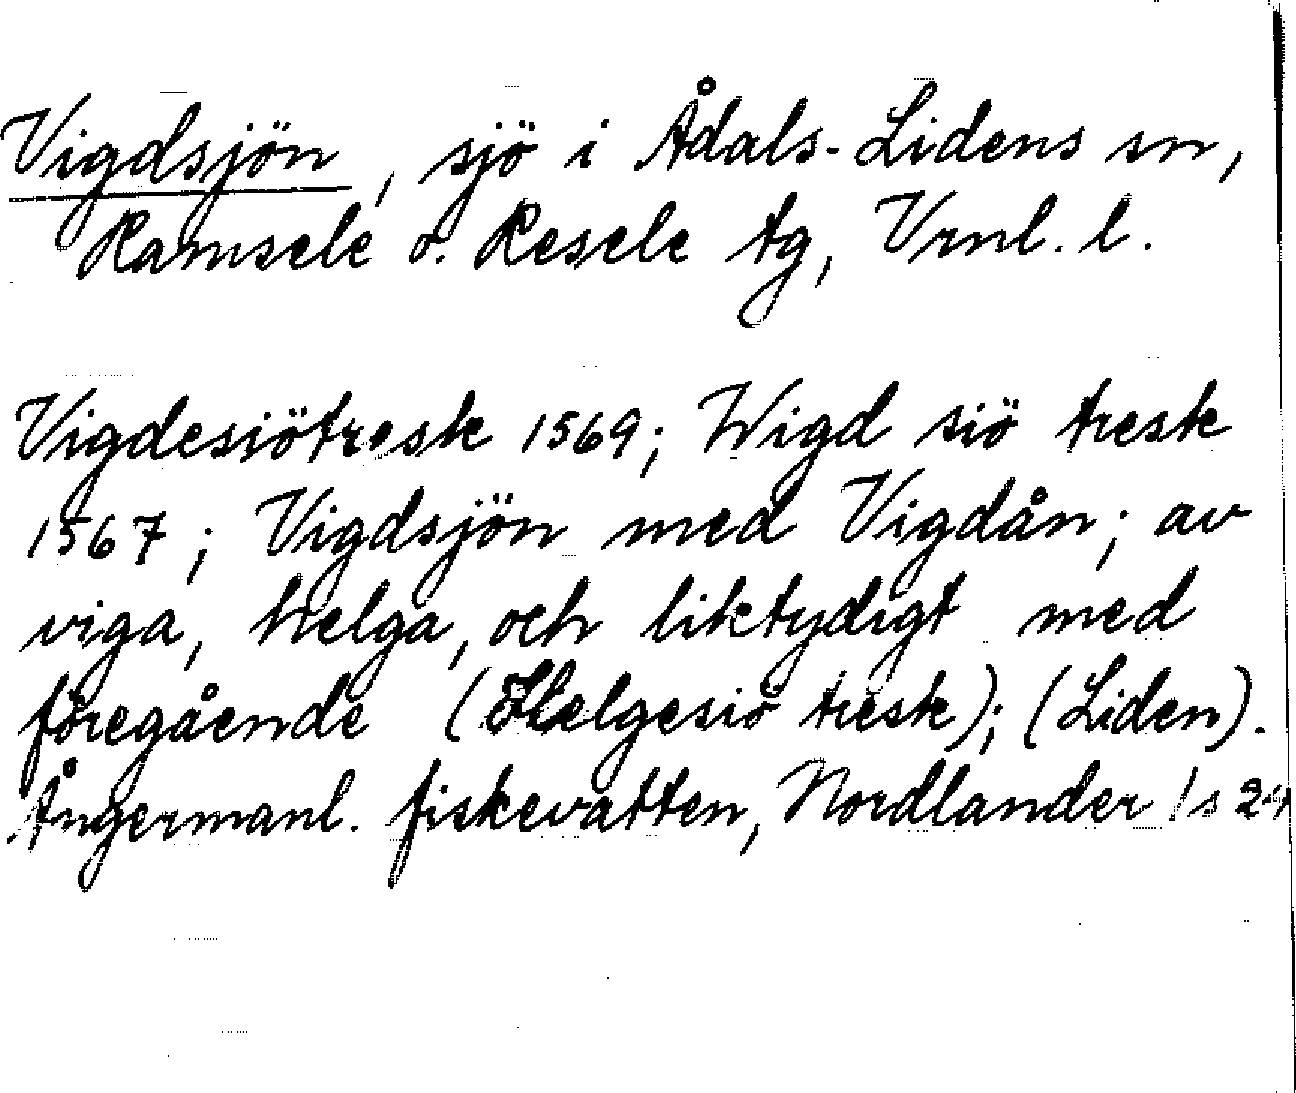 Vigdsjön, sjö i Ådals-Lidens sn,
Ramsele o. Resele tg, Vrnl. l.
Vigdesiötresk 1569; Wigd siö tresk
1567; Vigdsjön med Vigdån; av
viga, helga, och liktydigt med
föregående (Helgesiö tresk); (Liden).
Ångermanl. fiskevatten, Nordlander /s 24